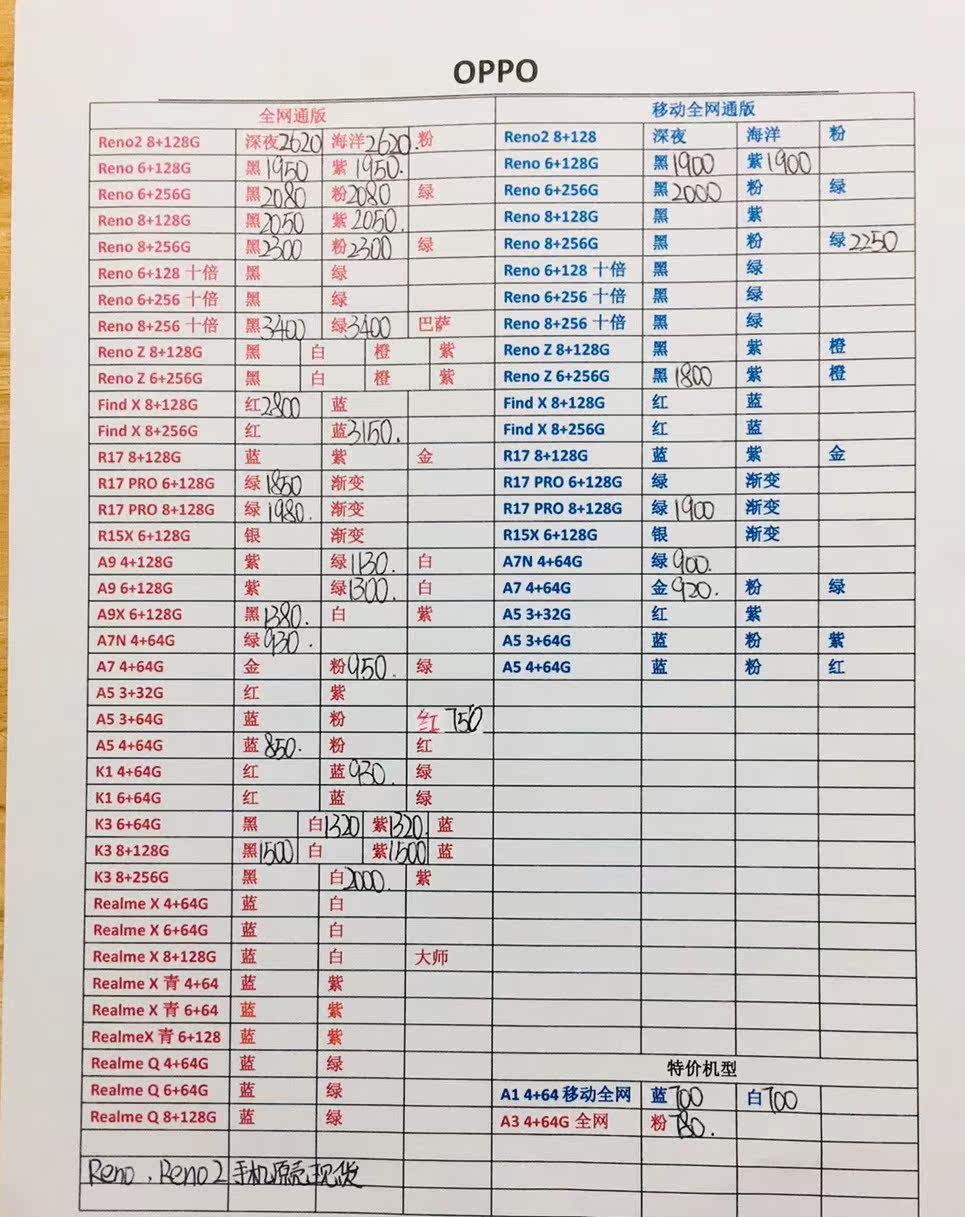 OPPO
全网通版 移动全网通版
Reno2 8+128G 深夜2620 海洋2620. 粉 Reno2 8+128 深夜 海洋 粉
Reno 6+128G 黑1950 紫1950. Reno 6+128G 黑1900 紫1900
Reno 6+256G 黑2080 粉2080 绿 Reno 6+256G 黑2000 粉 绿
Reno 8+128G 黑2050 紫2050. Reno 8+128G 黑 紫
Reno 8+256G 黑2300 粉2300 绿 Reno 8+256G 黑 粉 绿2250
Reno 6+128 十倍 黑 绿 Reno 6+128 十倍 黑 绿
Reno 6+256 十倍 黑 绿 Reno 6+256 十倍 黑 绿
Reno 8+256 十倍 黑3400 绿3400 巴萨 Reno 8+256 十倍 黑 绿
Reno Z 8+128G 黑 白 橙 紫 Reno Z 8+128G 黑 紫 橙
Reno Z 6+256G 黑 白 橙 紫 Reno Z 6+256G 黑1800 紫 橙
Find X 8+128G 红2800 蓝 Find X 8+128G 红 蓝
Find X 8+256G 红 蓝3150. Find X 8+256G 红 蓝
R17 8+128G 蓝 紫 金 R17 8+128G 蓝 紫 金
R17 PRO 6+128G 绿1850 渐变 R17 PRO 6+128G 绿 渐变
R17 PRO 8+128G 绿1980. 渐变 R17 PRO 8+128G 绿1900 渐变
R15X 6+128G 银 渐变 R15X 6+128G 银 渐变
A9 4+128G 紫 绿1130. 白 A7N 4+64G 绿900.
A9 6+128G 紫 绿1300. 白 A7 4+64G 金920. 粉 绿
A9X 6+128G 黑1380. 白 紫 A5 3+32G 红 紫
A7N 4+64G 绿930. A5 3+64G 蓝 粉 紫
A7 4+64G 金 粉950. 绿 A5 4+64G 蓝 粉 红
A5 3+32G 红 紫
A5 3+64G 蓝 粉 红750
A5 4+64G 蓝850. 粉 红
K1 4+64G 红 蓝930. 绿
K1 6+64G 红 蓝 绿
K3 6+64G 黑 白1320 紫1320. 蓝
K3 8+128G 黑1500 白 紫1500 蓝
K3 8+256G 黑 白2000. 紫
Realme X 4+64G 蓝 白
Realme X 6+64G 蓝 白
Realme X 8+128G 蓝 白 大师
Realme X 青 4+64 蓝 紫
Realme X 青 6+64 蓝 紫
RealmeX 青 6+128 蓝 紫
Realme Q 4+64G 蓝 绿 特价机型
Realme Q 6+64G 蓝 绿 A1 4+64 移动全网 蓝700 白700
Realme Q 8+128G 蓝 绿 A3 4+64G 全网 粉780.
Reno、Reno2手机原壳现货